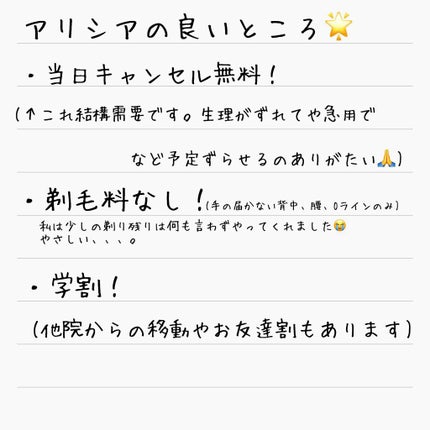 アリシアの良いところ🌟
・当日キャンセル無料！
(↑これ結構需要です。生理がずれてや急用で
など予定ずらせるのありがたい🙏)
・剃毛料なし！(手の届かない背中、腰、Oラインのみ)
私は少しの剃り残りは何も言わずやってくれました😭
やさしい、、、。
・学割！
(他院からの移動やお友達割もあります)